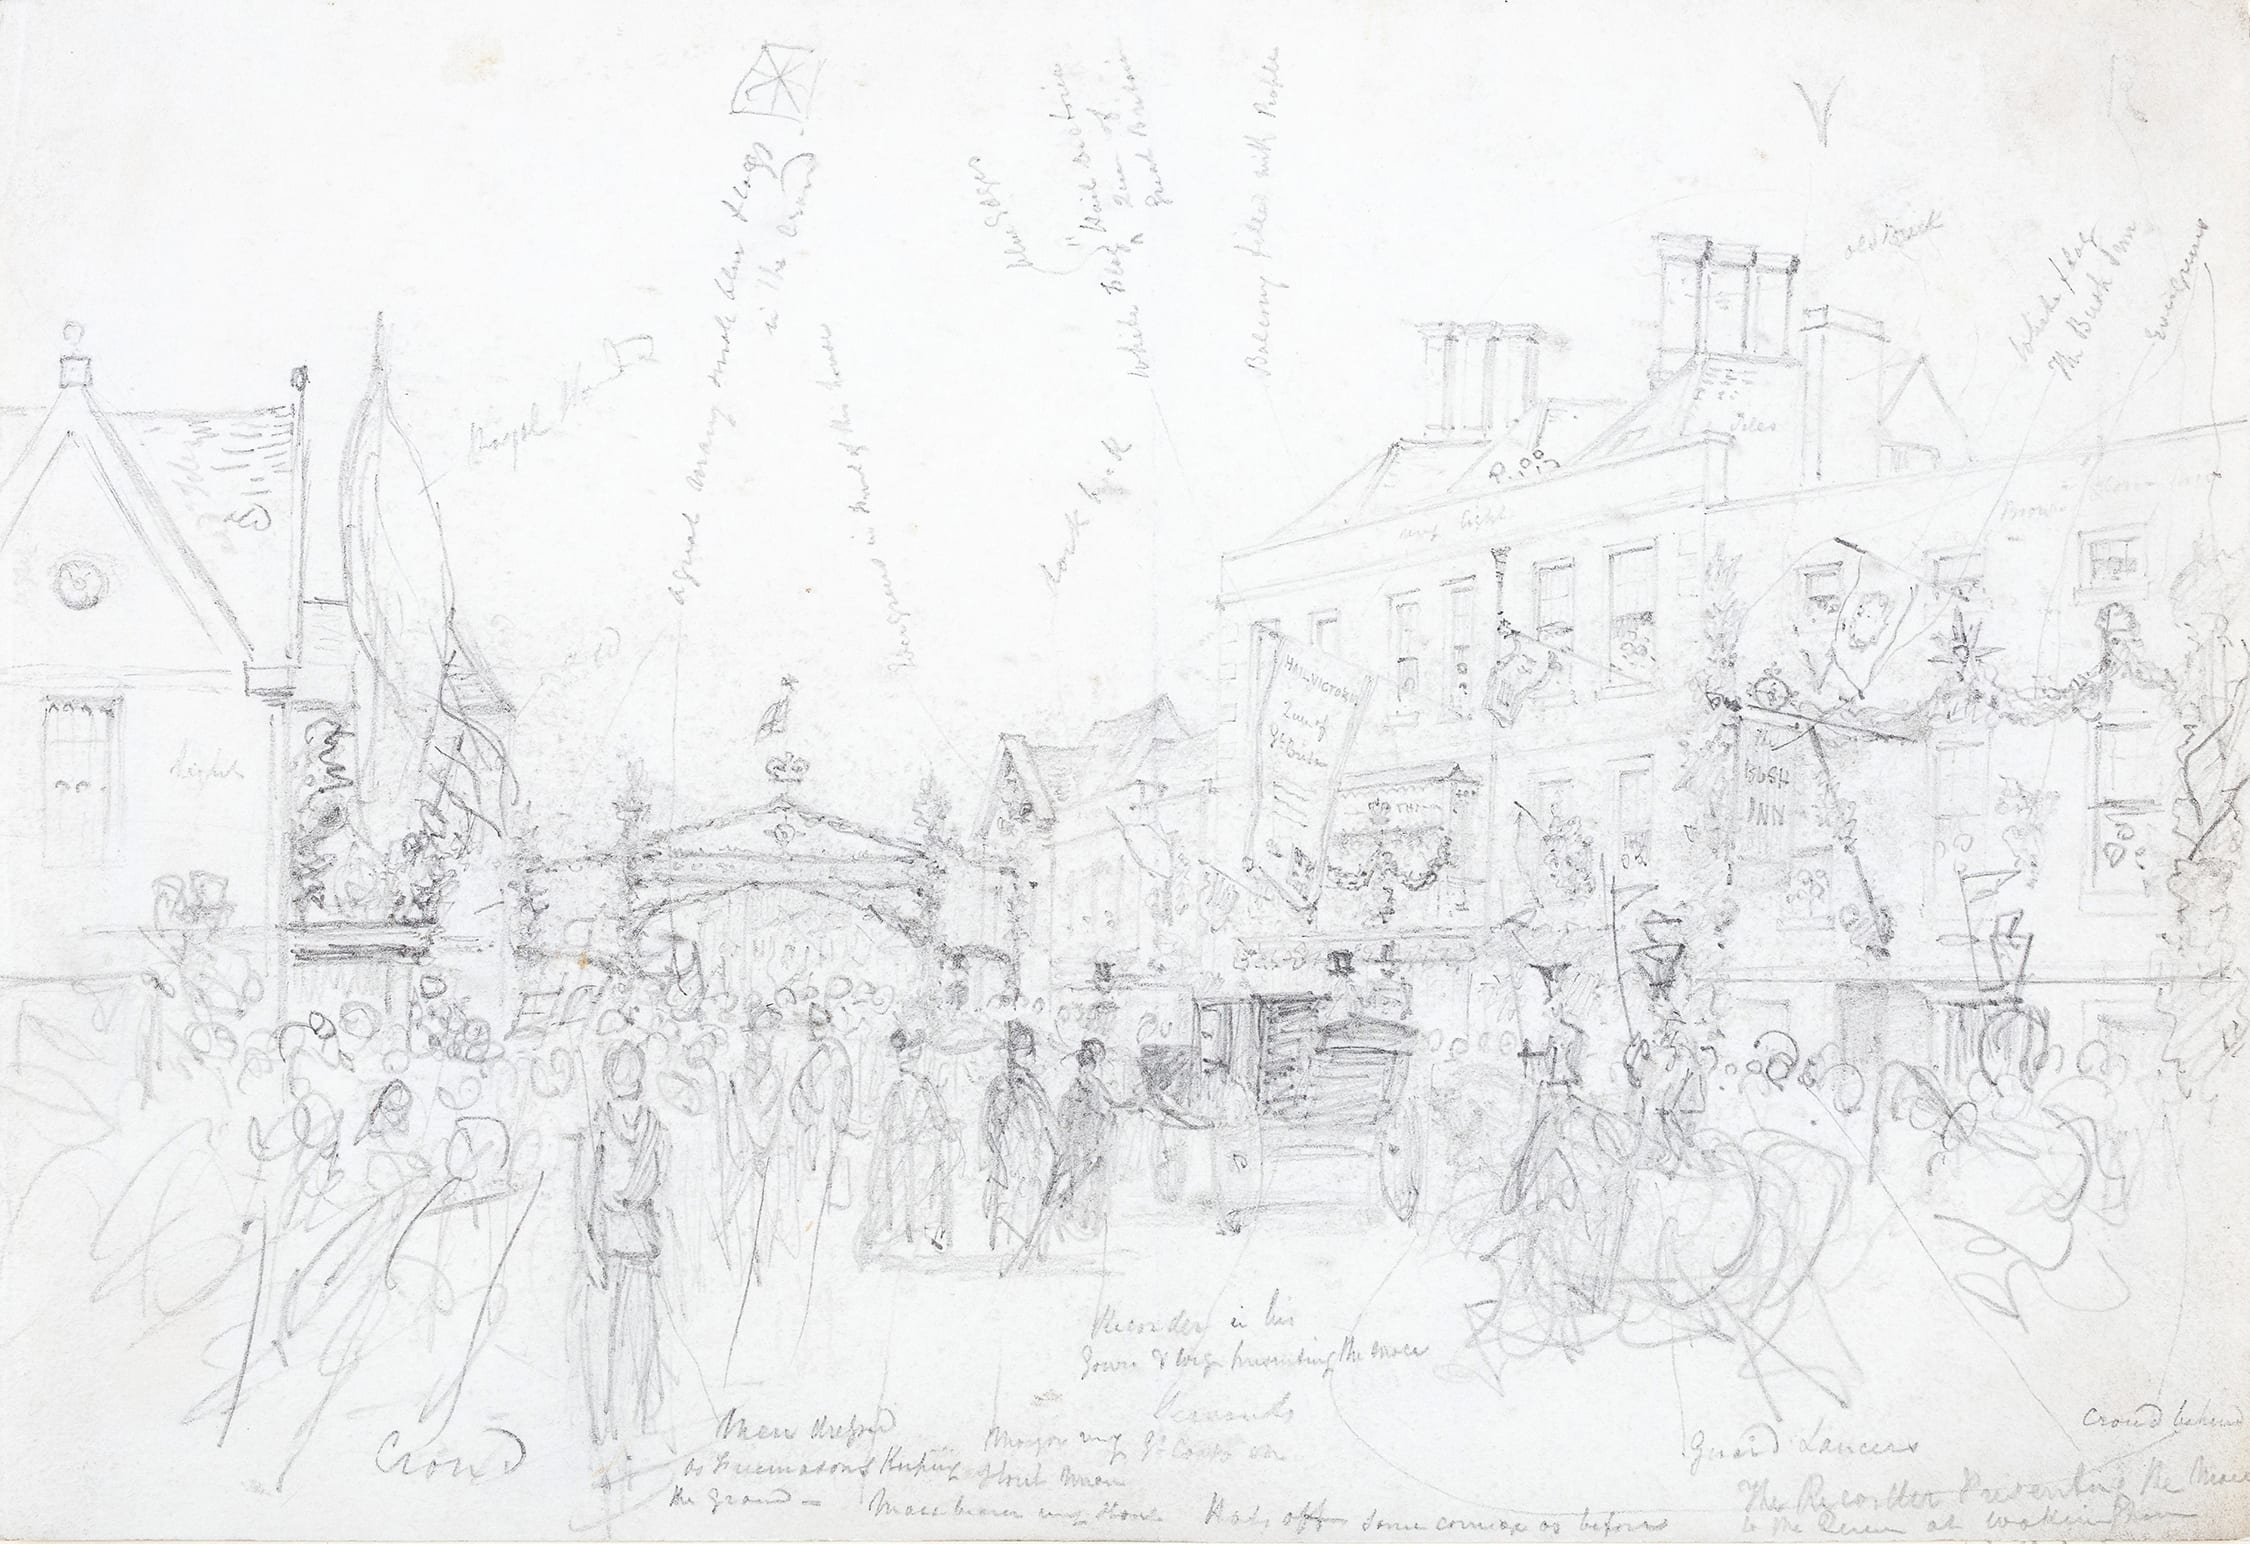 a great many small blue Flags
in the Crowd
Evergreens in front of this house
"Hail Victoria
Queen of
Great Britain
White Flag
Balcony filled with People
old Brick
White flag
The Bush Inn
Evergreens
Royal
Tiles
very light
light
HAIL VICTORIA
Queen of
Gt Britain
The
BUSH
INN
Recorder in his
Gown & wig presenting the mace
Servants
Crowd
Men dressed
as Freemasons Keeping
the ground –
Mayor very
Stout Man
Mace bearer very Stout
Hats off
Same carriage as before
Guard Lancers
Crowd behind
The Recorder Presenting the Mace
to the Queen at Wokingham